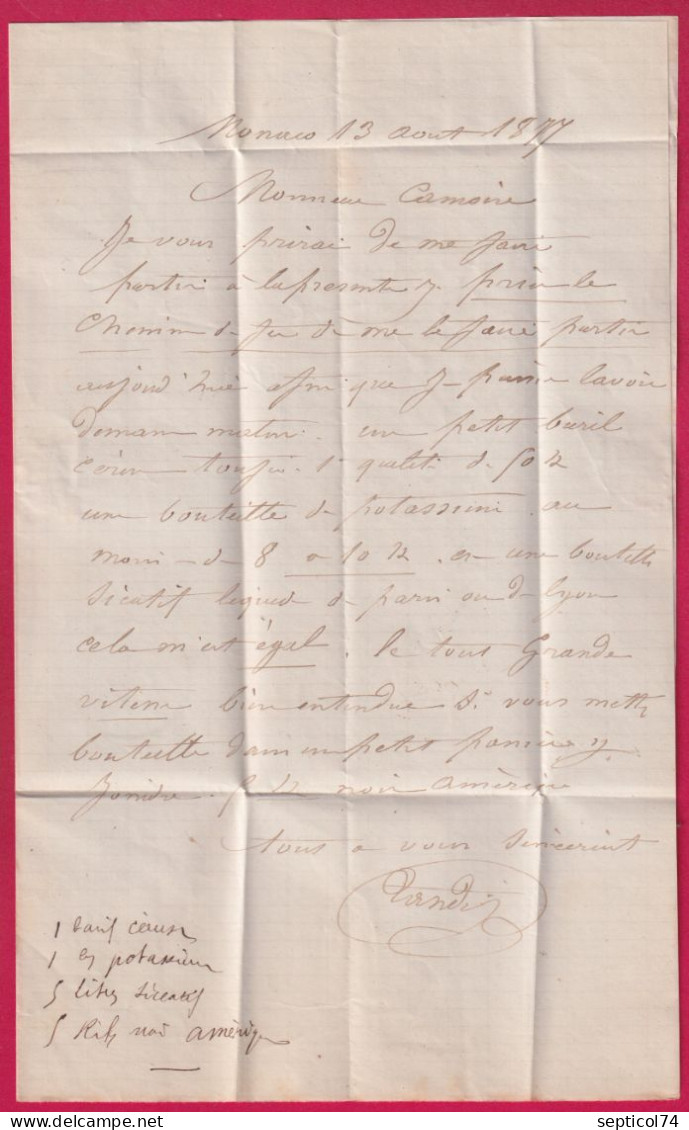 Monaco 13 aout 1877
Monsieur Camoire
Je vous prirai de me faire
partir à la presente y prier le
Chemin de fer de me le faire partir
aujourd'hui afin que Je puisse lavoir
demain matin. un petit baril
1e qualité de 50 K
une bouteille de potassium au
moin de 8 a 10 K. et une bouteille
Sicatif liquide de paris ou de Lyon
cela m'est égal. le tout Grande
vitesse bien entendue Si vous mette
bouteille dans un petit panier y
Joindre 5 K noir amèrique
tous a vous Sincerint
1 baril céruse
1 potassium
5 litres siccatif
5 Kils noir amèrique
septicol74